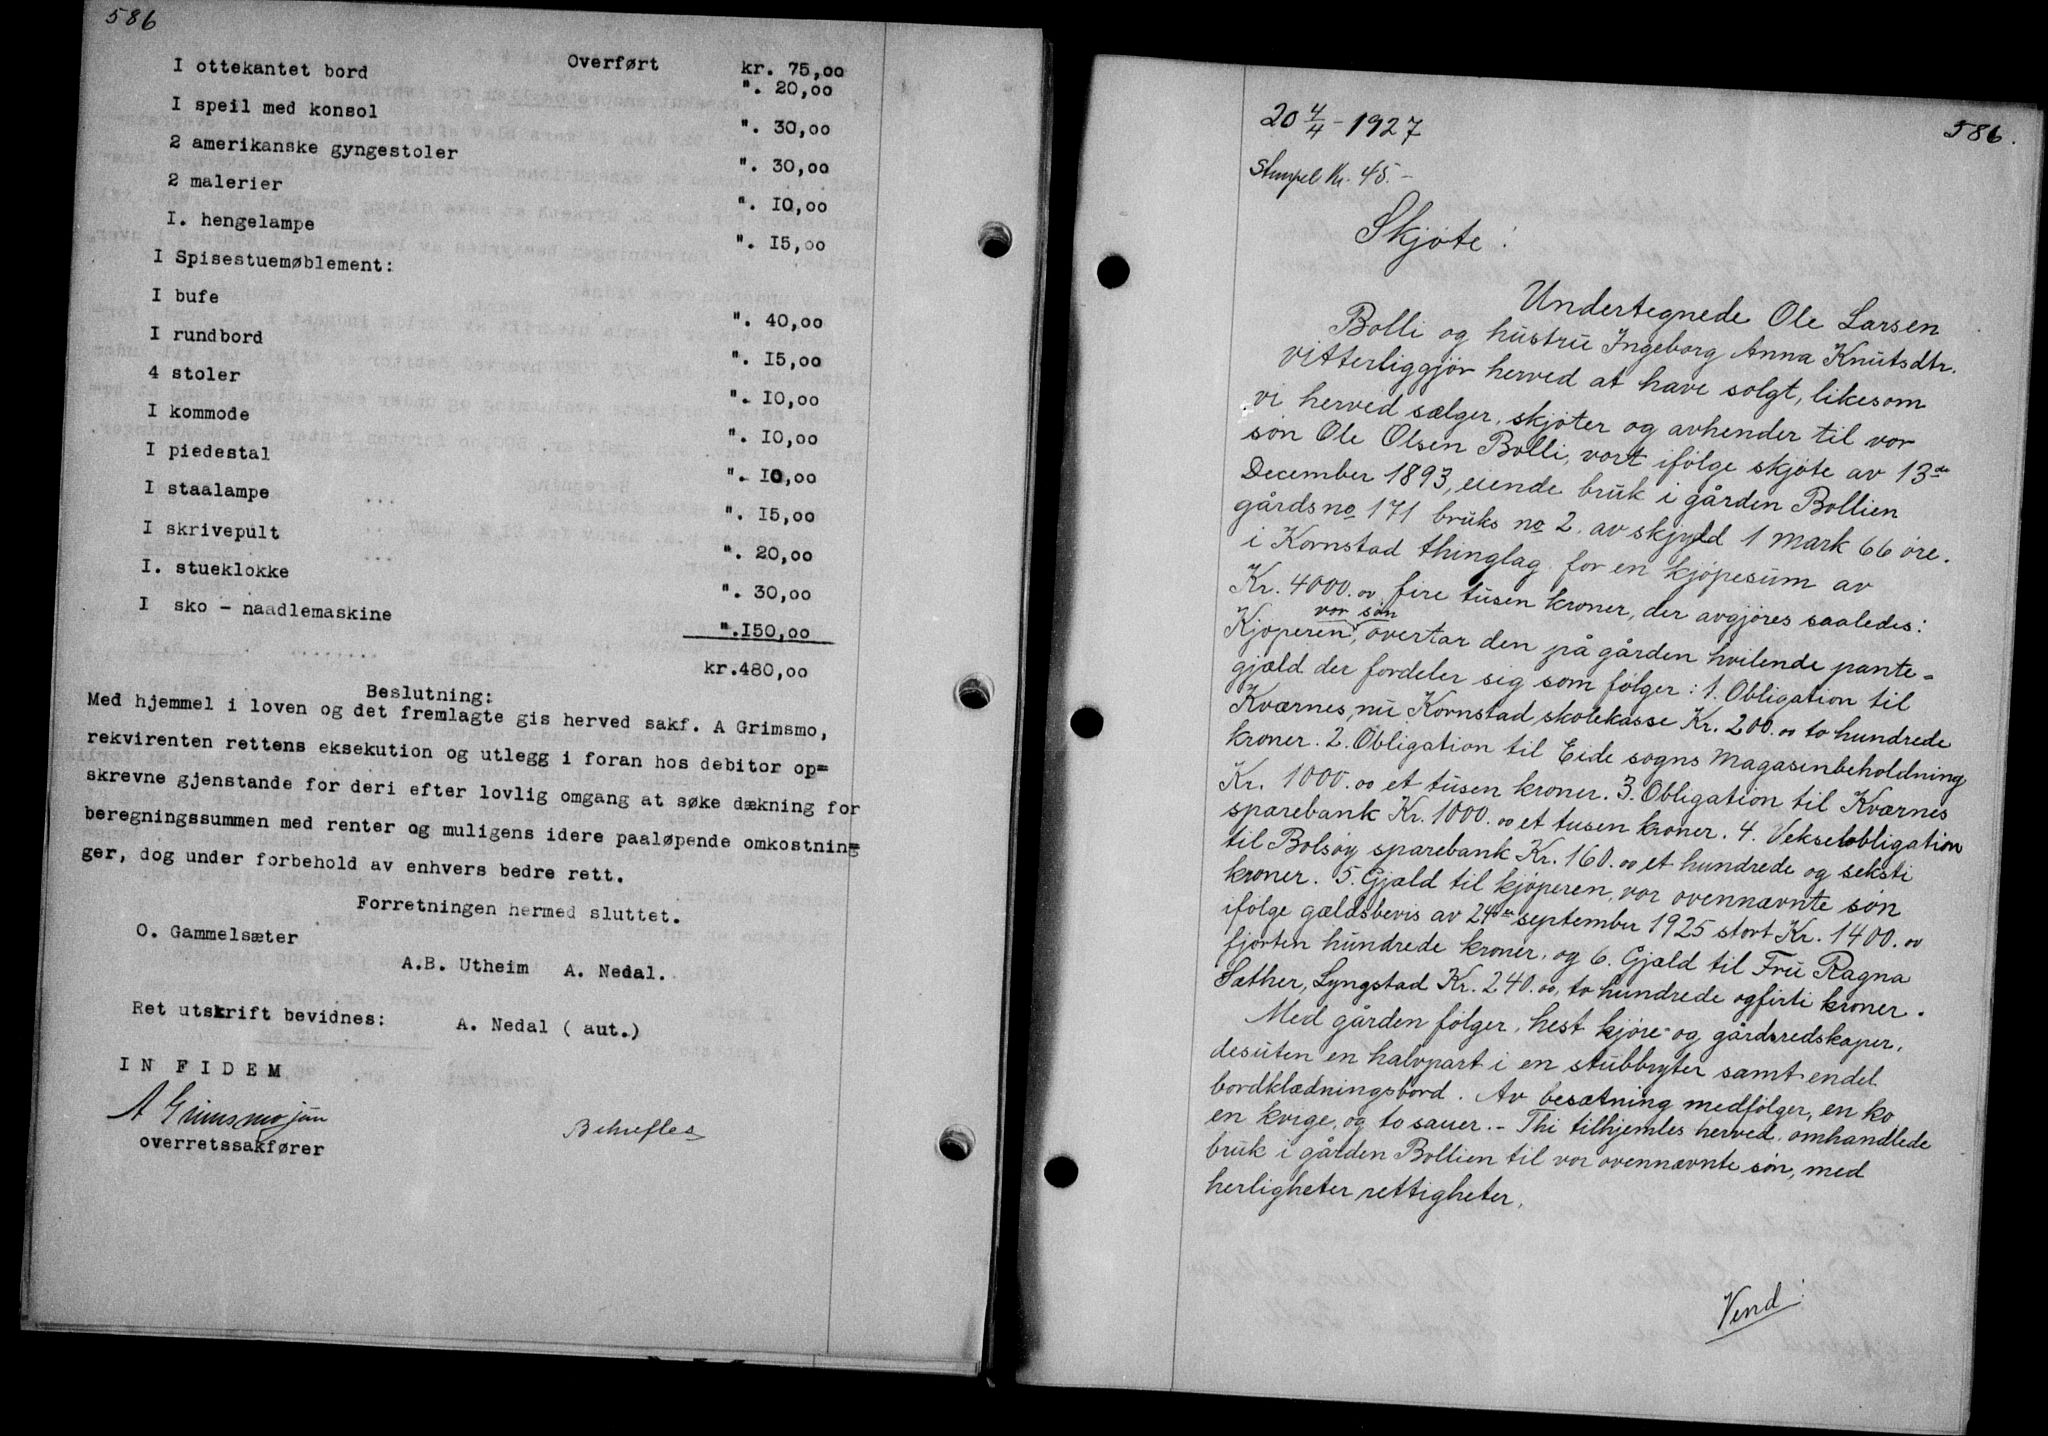 586
Overført kr. 75,00
I ottekantet bord ". 20,00
I speil med konsol ". 30,00
2 amerikanske gyngestoler ". 30,00
2 malerier ". 10,00
I. hengelampe ". I5,00
I Spisestuemøblement:
I bufe ". 40,00
I rundbord ". I5,00
4 stoler ". I0,00
I kommode ". I0,00
I piedestal ". I0,00
I staalampe ". I5,00
I skrivepult ". 20,00
I. stueklokke ". 30,00
I sko - naadlemaskine ".I50,00
kr.480,00
Beslutning:
Med hjemmel i loven og det fremlagte gis herved sakf. A Grimsmo,
rekvirenten rettens eksekution og utlegg i foran hos debitor op=
skrevne gjenstande for deri efter lovlig omgang at søke dækning for
beregningssummen med renter og muligens idere paaløpende omkostnin=
ger, dog under forbehold av enhvers bedre rett.
Forretningen hermed sluttet.
O. Gammelsæter
A.B. Utheim A. Nedal.
Ret utskrift bevidnes: A. Nedal ( aut.)
I N F I D E M
A Grimsmo jun
overretssakfører
Bekreftes
20 4/4 - 1927
586.
Stempel Kr. 45.-
Skjøte:
Undertegnede Ole Larsen
Bolli og hustru Ingeborg Anna Knutsdtr.
vitterliggjør herved at have solgt, likesom
vi herved sælger, skjøter og avhender til vor
søn Ole Olsen Bolli, vort ifølge skjøte av 13de
December 1893, eiende bruk i gården Bollien
gårds no 171 bruks no 2. av skjyld 1 mark 66 øre.
i Kornstad thinglag. for en kjøpesum av
Kr. 4000.00 fire tusen kroner, der avgjøres saaledes:
vor søn
Kjøperen, overtar den på gården hvilende pante-
gjæld der fordeler sig som følger: 1. Obligation til
Kværnes, nu Kornstad skolekasse Kr. 200.00 to hundrede
kroner. 2. Obligation til Eide sogns Magasinbeholdning
Kr. 1000.00 et tusen kroner. 3. Obligation til Kværnes
sparebank Kr. 1000.00 et tusen kroner. 4. Vekselobligation
til Bolsøy sparebank Kr. 160.00 et hundrede og seksti
kroner. 5. Gjæld til kjøperen, vor ovennævnte søn
ifølge gældsbevis av 24de september 1925 stort Kr. 1400.00
fjorten hundrede kroner, og 6. Gjæld til Fru Ragna
Sæther, Lyngstad Kr. 240.00, to hundrede og firti kroner.
Med gården følger, hest kjøre- og gårdsredskaper,
desuten en halvpart i en stubbryter samt endel
bordklædningsbord. Av besætning medfølger, en ko
en kvige, og to sauer. - Thi tilhjemles herved, omhandlede
bruk i gården Bollien til vor ovennævnte søn, med
herligheter rettigheter.
Vend: